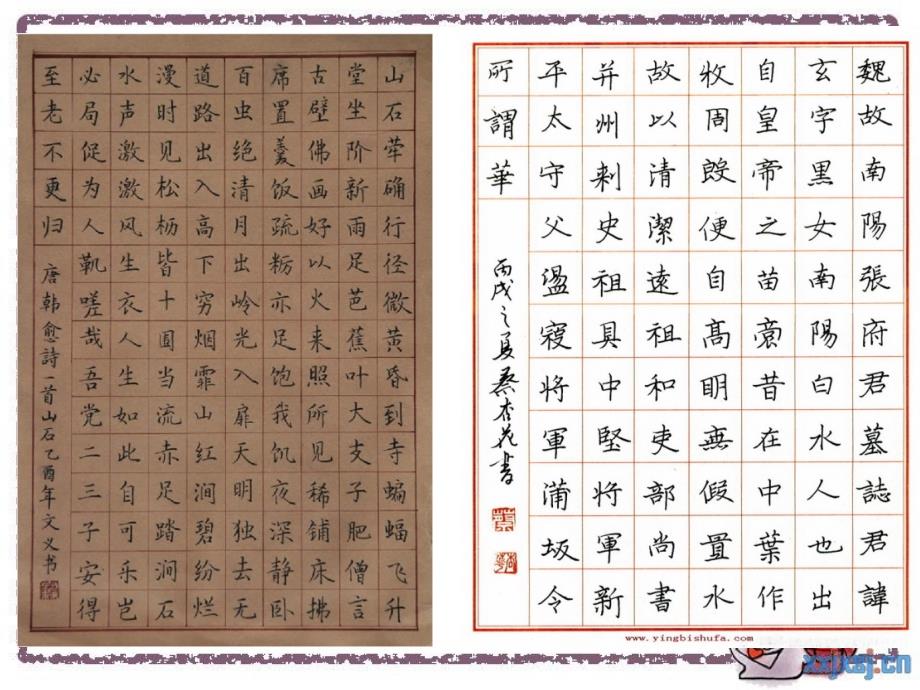 山石荦确行径微黄昏到寺蝙蝠飞升
堂坐阶新雨足芭蕉叶大支子肥僧言
古壁佛画好以火来照所见稀铺床拂
席置羹饭疏粝亦足饱我饥夜深静卧
百虫绝清月出岭光入扉天明独去无
道路出入高下穷烟霏山红涧碧纷烂
漫时见松枥皆十圍当流赤足踏涧石
水声激激风生衣人生如此自可乐岂
必局促为人鞿嗟哉吾党二三子安得
至老不更归
唐韩愈詩一首山石乙酉年文义书
魏故南陽張府君墓誌君諱
玄字黑女南陽白水人也出
自皇帝之苗裔昔在中葉作
牧周殷便自高明無假置水
故以清潔遠祖和吏部尚書
并州刺史祖具中堅將軍新
平太守父盪寇將軍蒲坂令
所謂華
丙戌之夏蔡杏花書
www.yingbishufa.com
xxjxsj.cn